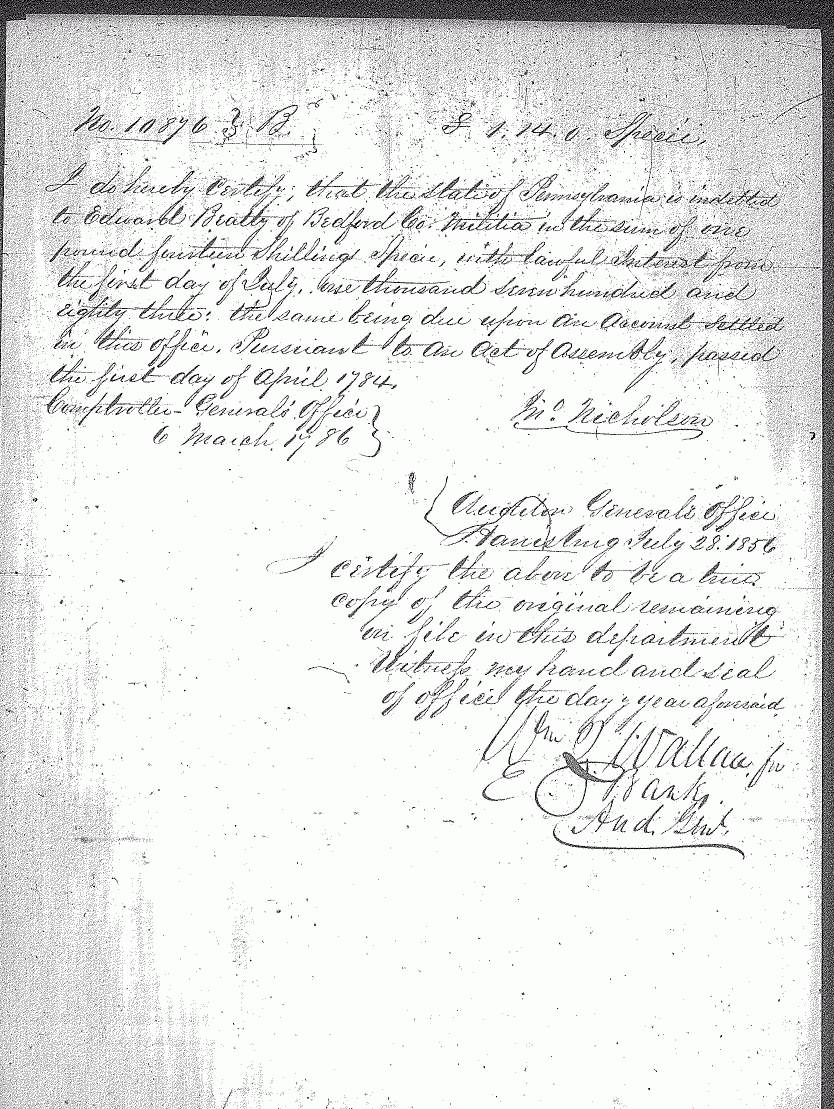 No. 10876 } B } £ 1. 14. 0. Specie.
I do hereby Certify, that the State of Pennsylvania is indetted
to Edward Beatty of Bedford Co. Militia in the sum of one
pound fourteen Shillings Specie, with lawful Interest from
the first day of July, one thousand seven hundred and
eighty three: the same being due upon an Account Settled
in this office. Pursuant to an Act of Assembly, passed
the first day of April 1784.
Comptroller Generals Office }
6 March. 1786 }
Jno. Nicholson
Auditor Generals Office
Harrisburg July 28. 1856
I certify the above to be a true
copy of the original remaining
on file in this department
Witness my hand and seal
of office the day & year aforesaid.
Wm Q Wallace for
E Banks.
Aud. Genl.